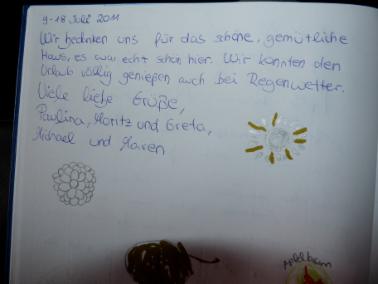 9-18 Juli 2011
Wir bedanken uns für das schöne, gemütliche
Haus, es war echt schön hier. Wir konnten den
Urlaub völlig genießen auch bei Regenwetter.
Viele liebe Grüße,
Paulina, Moritz und Greta,
Michael und Maren
Apfelbaum